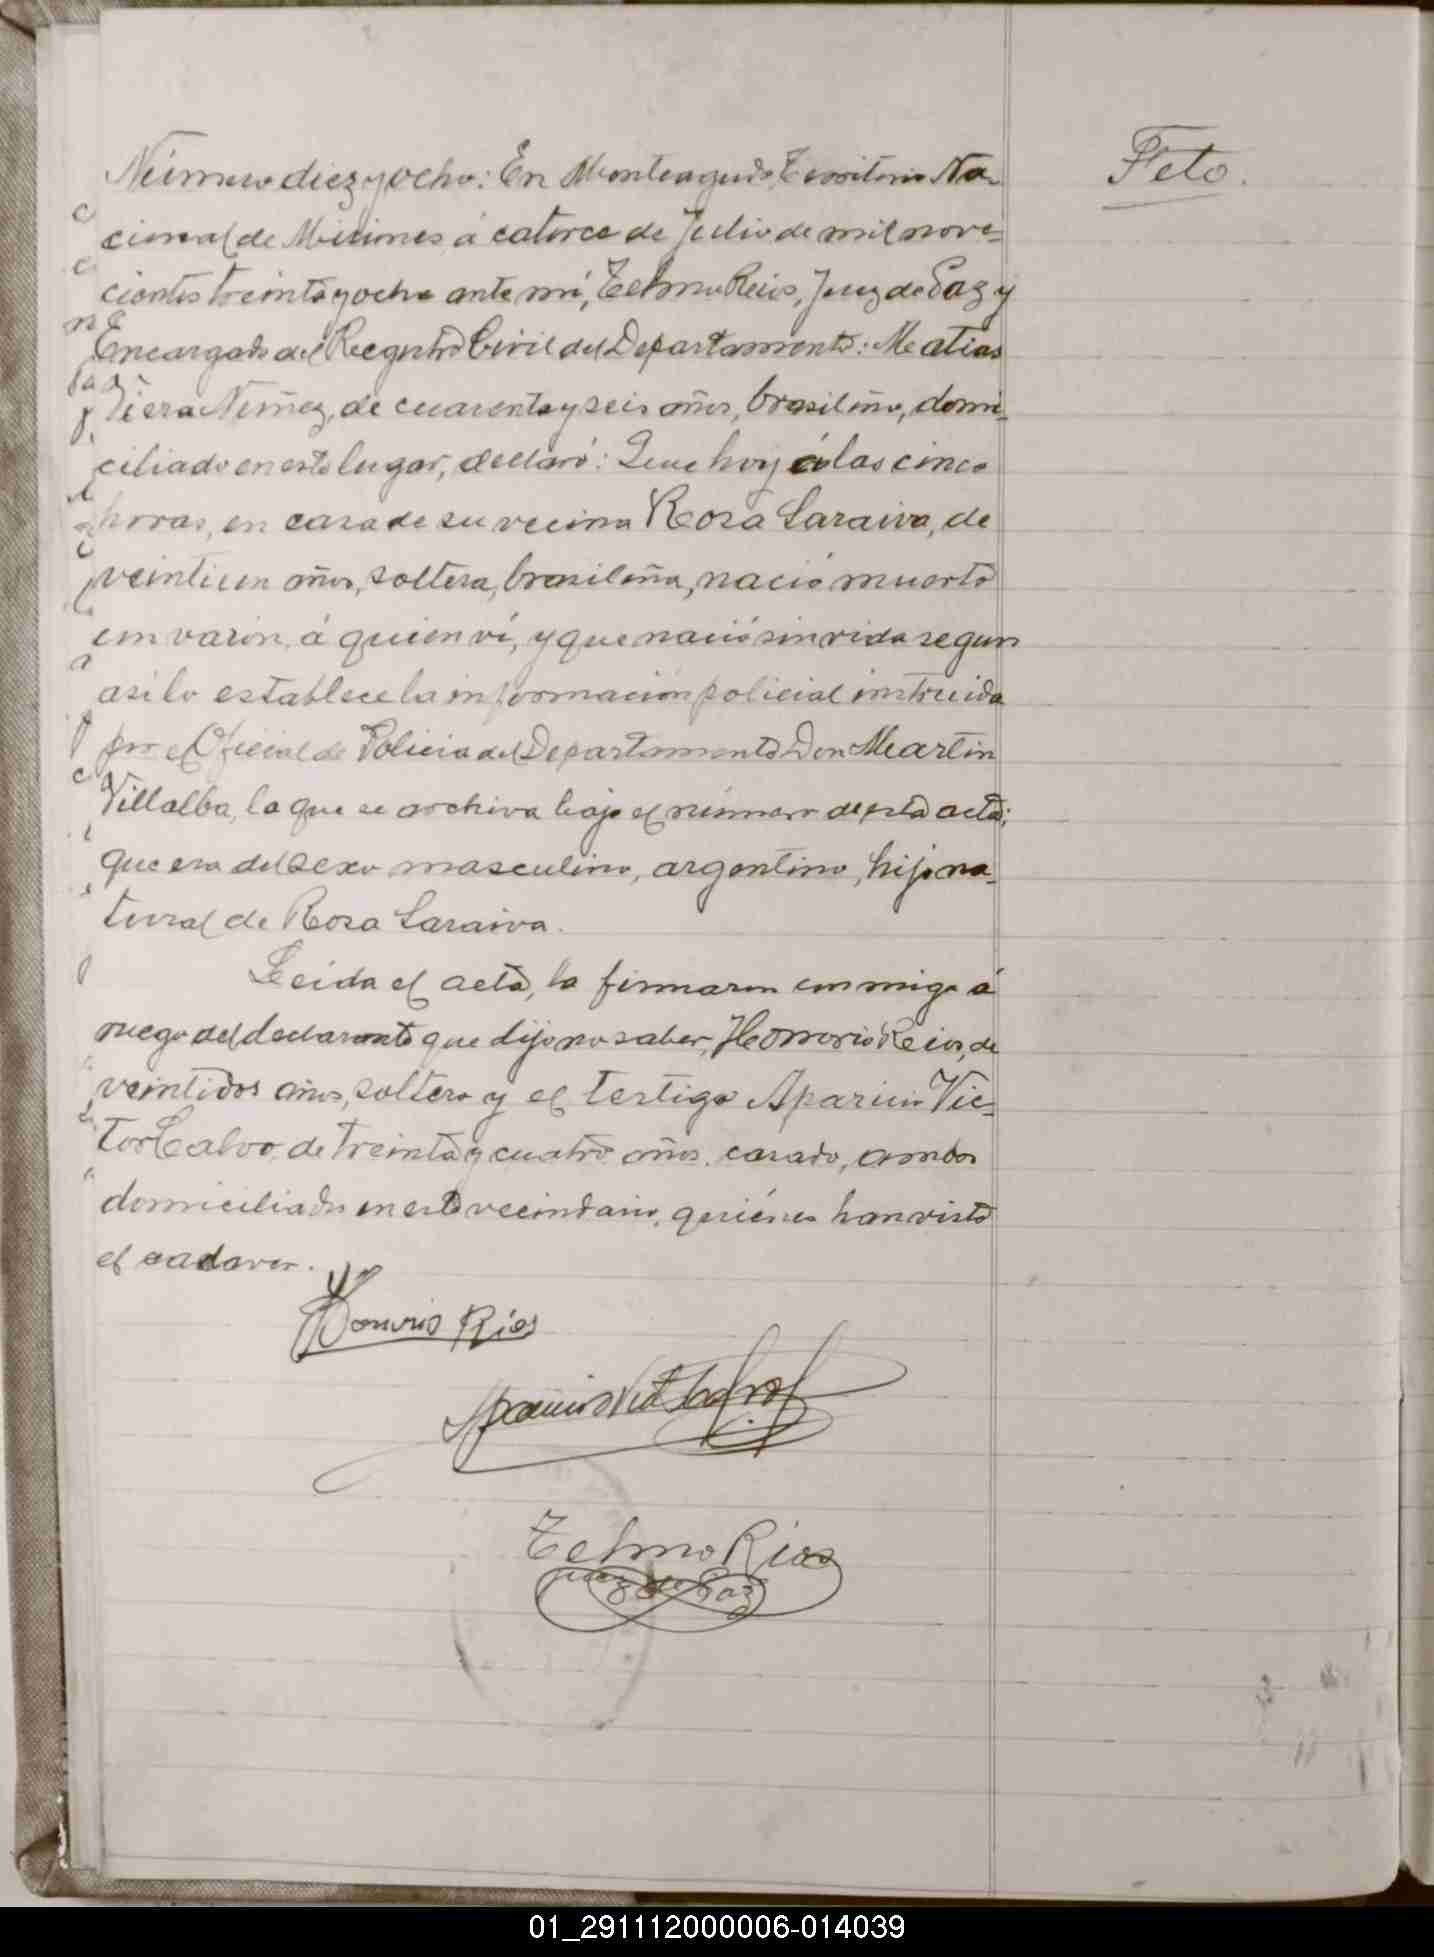 Feto.
Número diez y ocho: En Monteagudo, Territorio Na-
cional de Misiones, á catorce de Julio de mil nove-
cientos treinta y ocho ante mí, Telmo Reios, Juez de Paz y
Encargado del Registro Civil del Departamento: Matias
Viera Nuñez, de cuarenta y seis años, brasileño, domi-
ciliado en este lugar, declaró: Que hoy á las cinco
horas, en casa de su vecina Rosa Saraiva, de
veintiun años, soltera, brasileña, nació muerto
un varón, á quien ví, y que nació sin vida segun
asi lo establece la información policial instruida
por el Oficial de Policia del Departamento Don Martin
Villalba, la que se archiva bajo el número de esta acta;
que era del sexo masculino, argentino, hijo na-
tural de Rosa Saraiva.
Leida el acta, la firmaron conmigo á
ruego del declarante que dijo no saber, Honorio Reios, de
veintidos años, soltero y el testigo Aparicio Vic-
tor Calvo, de treinta y cuatro años, casado, ambos
domiciliados en este vecindario, quiénes han visto
el cadaver.
Honorio Ríos
Telmo Ríos
Juez de Paz
01_291112000006-014039